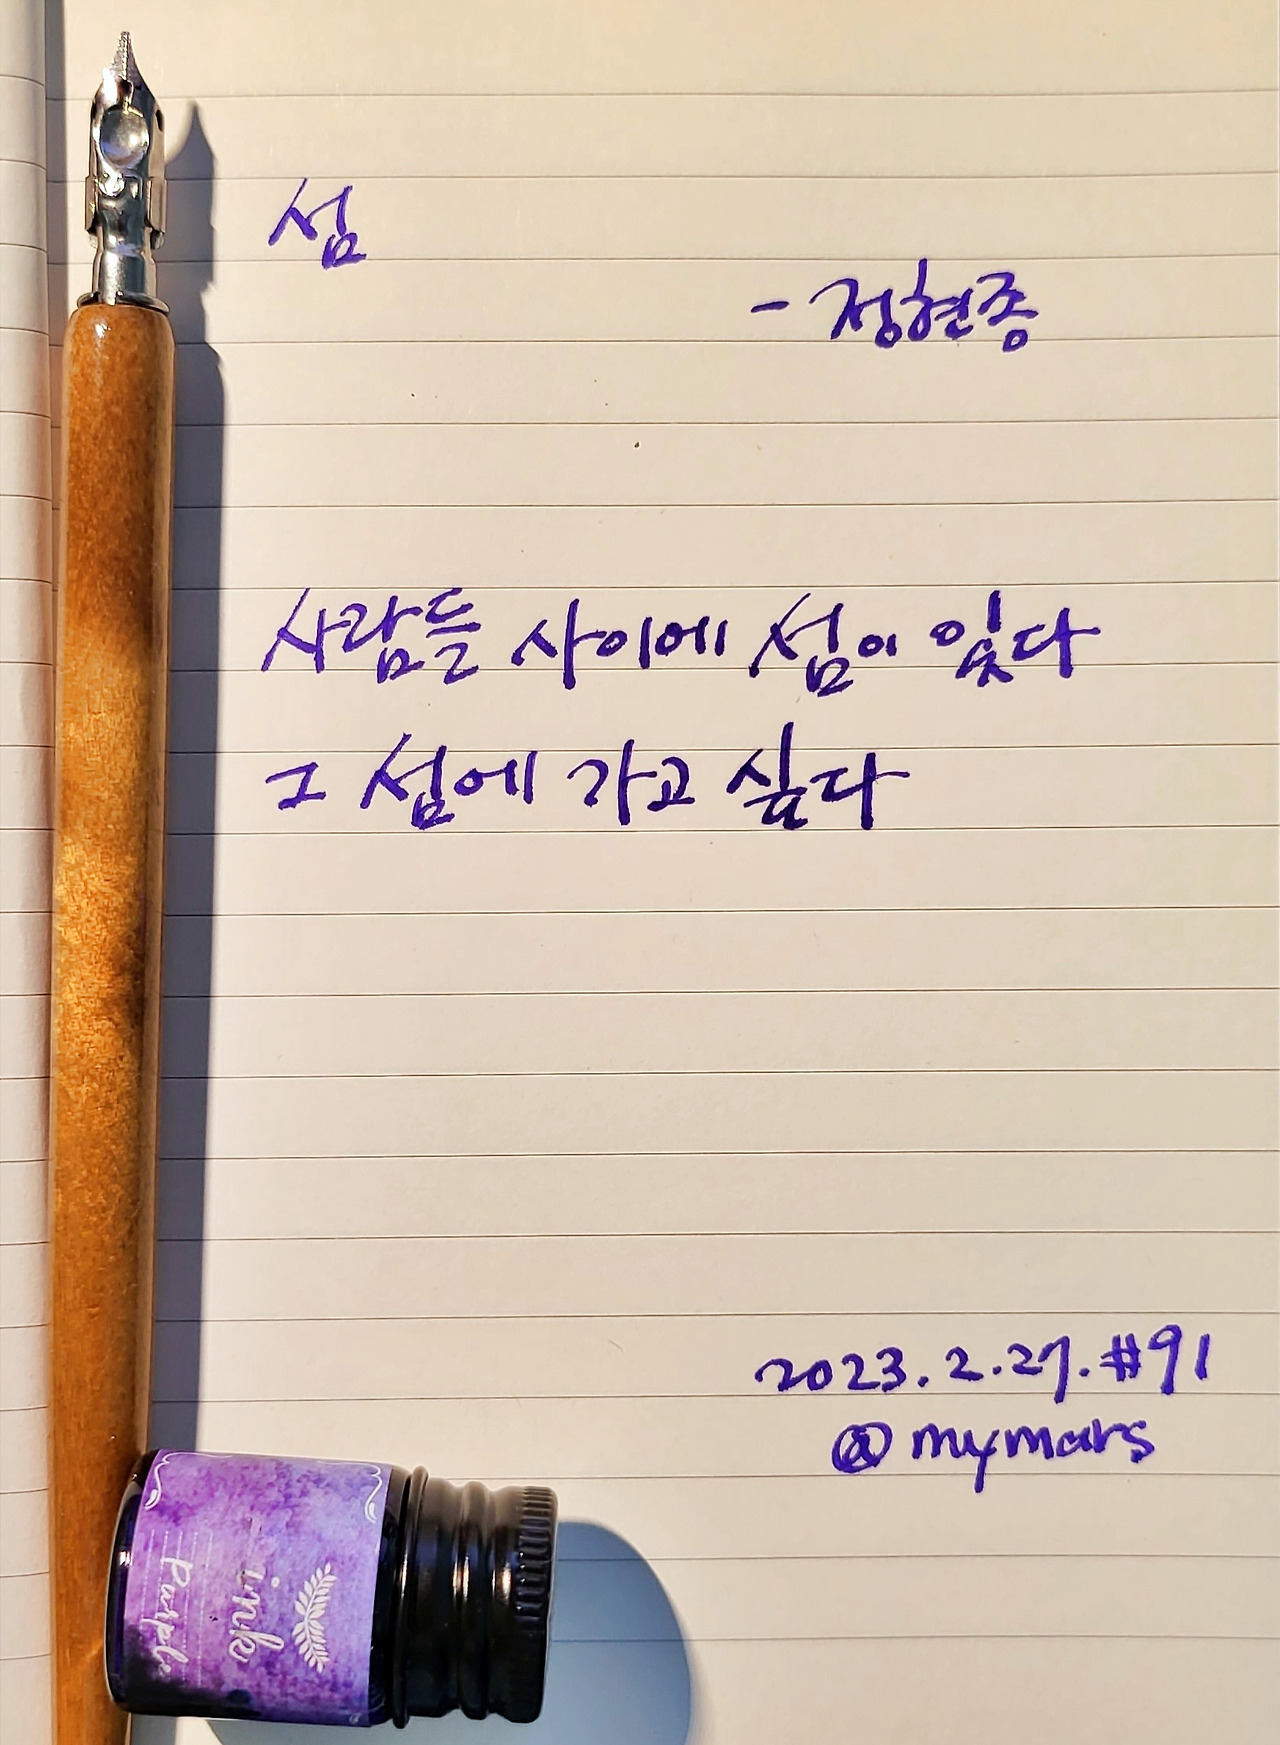 섬
- 정현종
사람들 사이에 섬이 있다
그 섬에 가고 싶다
2023.2.27.#91
@mymars
ink
Purple